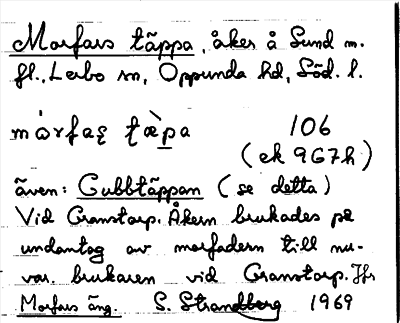 Morfars täppa, åker å Sund m.
fl., Lerbo sn, Oppunda hd, Söd. l.
106
(ek 9G7h)
även: Gubbtäppan (se detta)
Vid Granstorp. Åkern brukades på
undantag av morfadern till nu-
var. brukaren vid Granstorp. Jfr
Morfars äng. S. Strandberg 1969